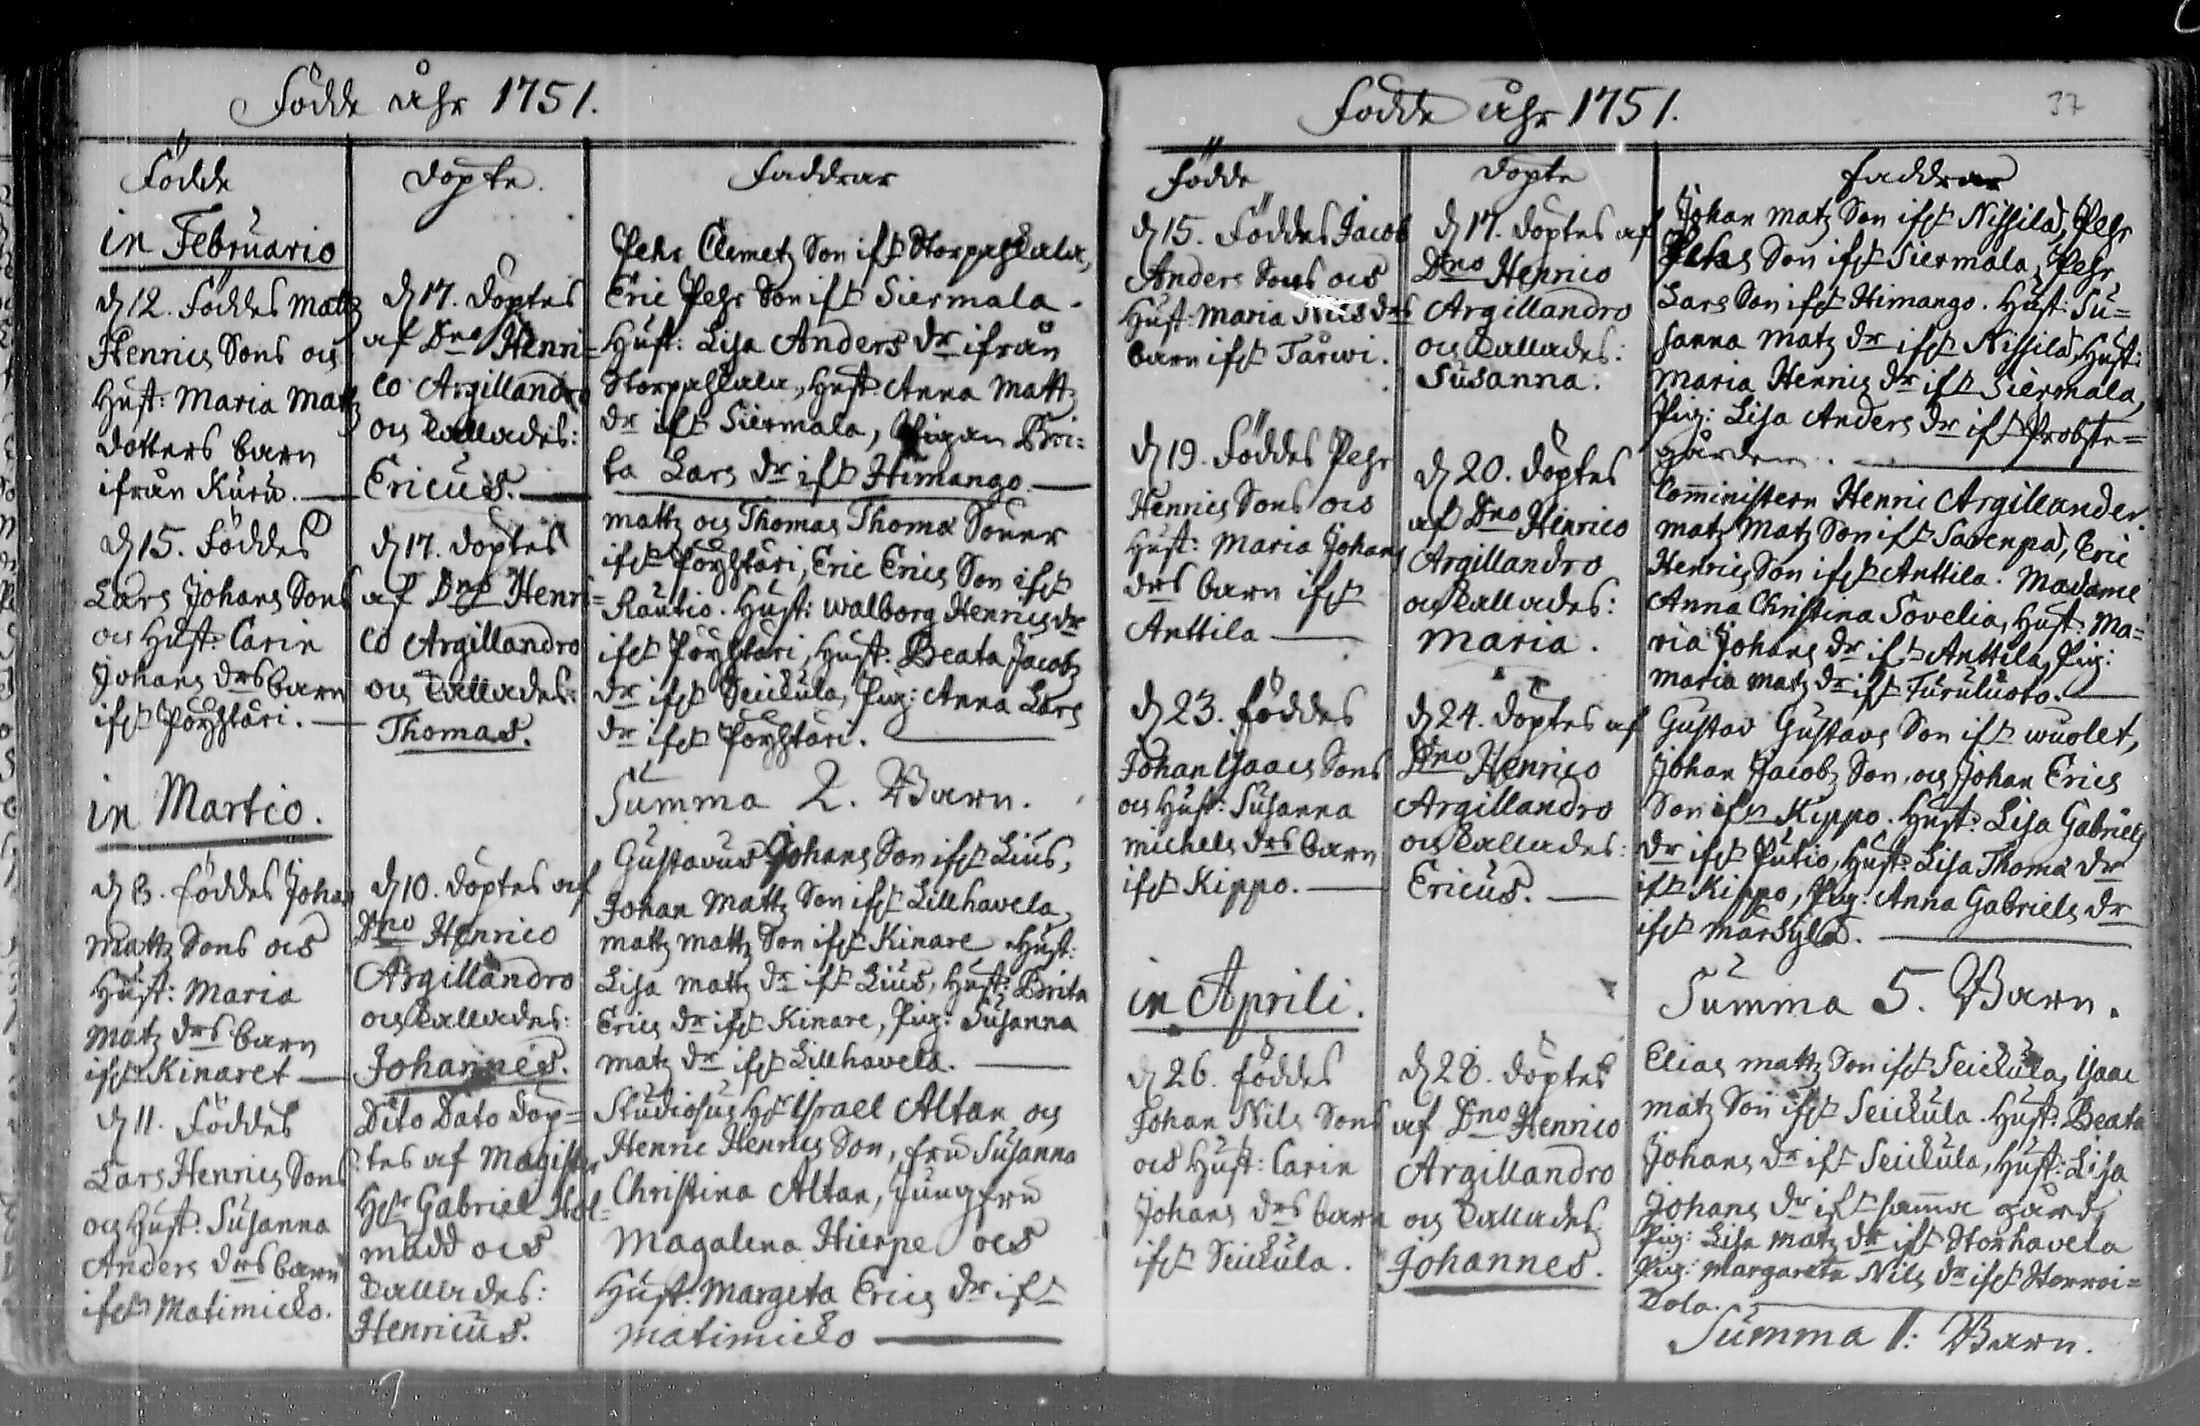 Födde åhr 1751.
Födde
Döpte.
Faddrar
in Februario
d 12. Föddes Mattz
Henrics Sons och
Hust: Maria Matz
dotters barn
ifrån Kuru.
d 17. döptes
af Dno Henri=
co Argillandro
och kallades:
Ericus.
Pehr Clemetz Son ifrå Storpahkala,
Eric Pehr Son ifrå Siermala.
Hust: Lisa Anders dr ifrån
Storpahkala, Hust: Anna Mattz
dr ifrå Siermala, Pigan Bri=
ta Lars dr ifrå Himango.
d 15. Föddes
Lars Johans Sons
och Hust: Carin
Johans drs barn
ifrå Pöyhtäri.
d 17. döptes
af Dno Henri=
co Argillandro
och kallades:
Thomas.
Mattz och Thomas Thomæ Söner
ifrå Pöyhtäri, Eric Erics Son ifrå
Rautio. Hust: Walborg Henrics dr
ifrå Pöyhtäri, Hust: Beata Jacobz
dr ifrå Seickula, Pig: Anna Lars
dr ifrå Pöyhtäri.
Summa 2. Barn.
in Martio.
d 8. föddes Johan
Mattz Sons och
Hust: Maria
Matz drs barn
ifrå Kinaret
d 10. döptes af
Dno Henrico
Argillandro
och kallades:
Johannes.
Gustavus Johans Son ifrå Lius,
Johan Mattz Son ifrå Lillhavela,
Mattz Mattz Son ifrå Kinare. Hust:
Lisa Mattz dr ifrå Lius, Hust: Brita
Erics dr ifrå Kinare, Pig: Susanna
Matz dr ifrå Lillhavela.
d 11. Föddes
Lars Henrics Sons
och Hust: Susanna
Anders drs barn
ifrå Matimicko.
Dito Dato döp=
tes af Magister
Herr Gabriel Hol=
madd och
kallades:
Henricus.
Studiosus Hr Israel Altan och
Henric Henrics Son, fru Susanna
Christina Altan, Jungfru
Magalena Hierpe och
Hust: Margeta Erics dr ifrå
Matimicko
Födde åhr 1751.
37
Födde
Döpte
Faddrar
d 15. Föddes Jacob
Anders Sons och
Hust: Maria Nils drs
barn ifrå Tårwi.
d 17. döptes af
Dno Henrico
Argillandro
och kallades:
Susanna.
Johan Matz Son ifrå Nissilä, Pehr
Pehrs Son ifrå Siermala, Pehr
Lars Son ifrå Himango. Hust: Su=
sanna Matz dr ifrå Nissilä, Hust:
Maria Henrics dr ifrå Siermala,
Pig: Lisa Anders dr ifrå Probste=
gården.
d 19. Föddes Pehr
Henrics Sons och
Hust: Maria Johans
drs barn ifrå
Anttila
d 20. döptes
af Dno Henrico
Argillandro
och kallades:
Maria.
Comministern Henric Argillander.
Matz Matz Son ifrå Savenpä, Eric
Henrics Son ifrå Anttila. Madame
Anna Christina Sovelia, Hust: Ma=
ria Johans dr ifrå Anttila, Pig:
Maria Matz dr ifrå Turuluoto.
d 23. föddes
Johan Isaacs Sons
och Hust: Susanna
Michels drs barn
ifrå Kippo.
d 24. döptes af
Dno Henrico
Argillandro
och kallades:
Ericus.
Gustav Gustavs Son ifrå Wuolet,
Johan Jacobz Son, och Johan Erics
Son ifrå Kippo. Hust: Lisa Gabriels
dr ifrå Putio, Hust: Lisa Thomæ dr
ifrå Kippo, Pig: Anna Gabriels dr
ifrå Marsylä.
Summa 5. Barn.
in Aprili.
d 26. föddes
Johan Nils Sons
och Hust: Carin
Johans drs barn
ifrå Seickula.
d 28. döptes
af Dno Henrico
Argillandro
och kallades
Johannes.
Elias Mattz Son ifrå Seickula, Isaac
Matz Son ifrå Seickula. Hust: Beata
Johans dr ifrå Seickula, Hust: Lisa
Johans dr ifrå samma gård,
Pig: Lisa Matz dr ifrå Storhavela
Pig: Margareta Nils dr ifrå Herroi=
kola.
Summa 1: Barn.